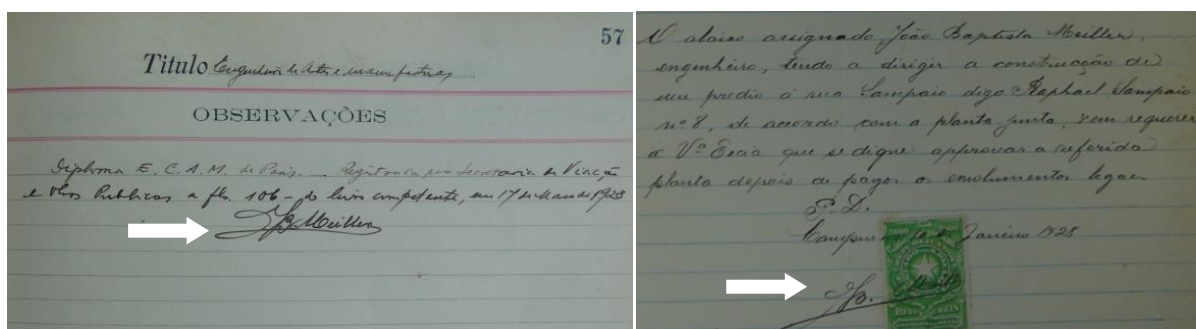 57
Titulo Engenheiro de Artes e manufacturas
OBSERVAÇÕES
Diploma E. C. A. M. de Paris. Registrado na Secretaria da Viação
e Obras Publicas a fls. 106 - do livro competente, em 17 de Maio de 1928
JBMeiller
O abaixo assignado, João Baptista Meiller,
engenheiro, tendo a dirigir a construcção de
um predio á rua Sampaio digo Raphael Sampaio
nº 8, de accordo com a planta junta, vem requerer
a Vª Excia que se digne approvar a referida
planta depois de pagos os emolumentos legaes
P. D.
de Janeiro 1928
JB.
REIS